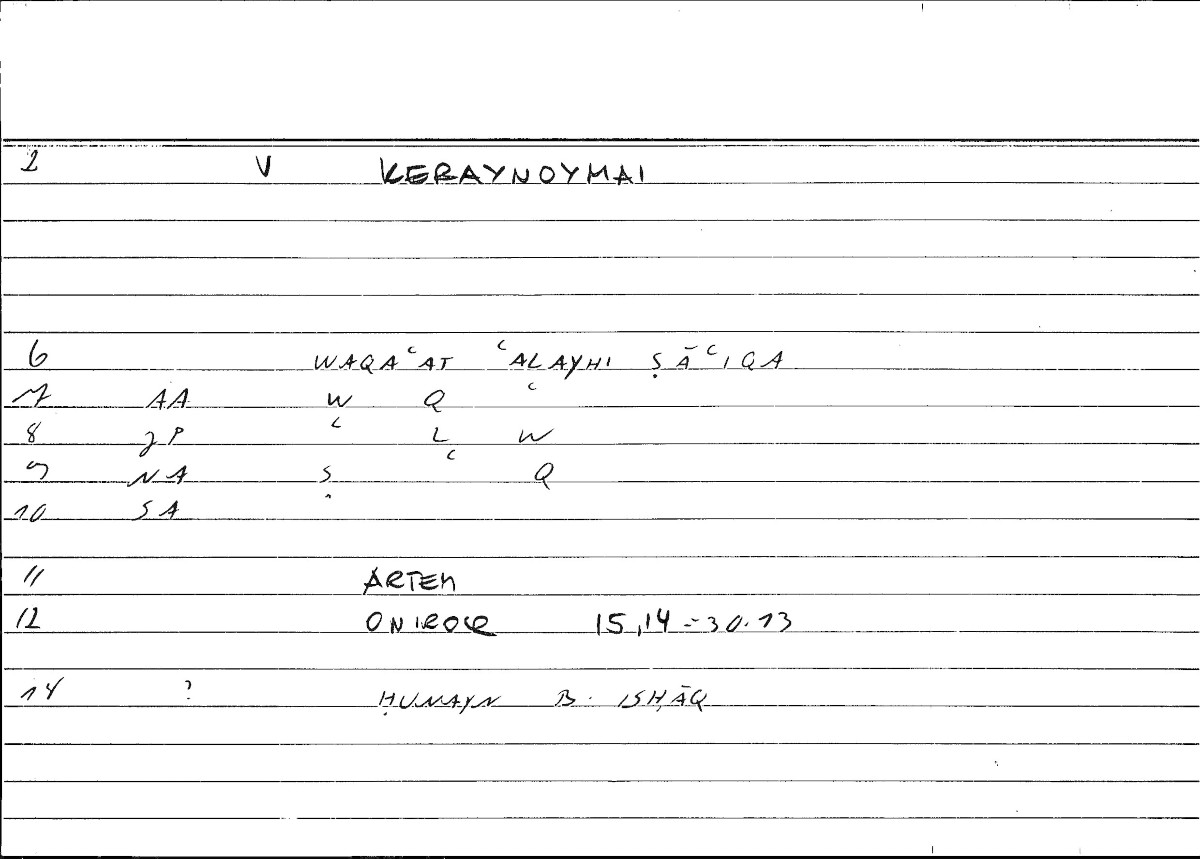 2 V KERAYNOYMAI
6 WAQAʿAT ʿALAYHI ṢĀʿIQA
7 AA W Q ʿ
8 JP ʿ L W
9 NA Ṣ ʿ Q
10 SA
11 ARTEM
12 ONIROCR 15,14 = 30.13
14 ? ḤUNAYN B. ISḤĀQ